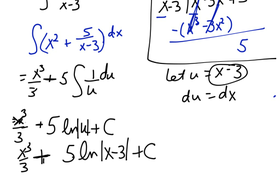 x-3
∫(x² + 5/(x-3))dx
= x³/3 + 5∫1/u du
x³/3 + 5 ln|u| + C
x³/3 + 5 ln|x-3| + C
x-3
-(x³-3x²)
5
Let u = x-3
du = dx